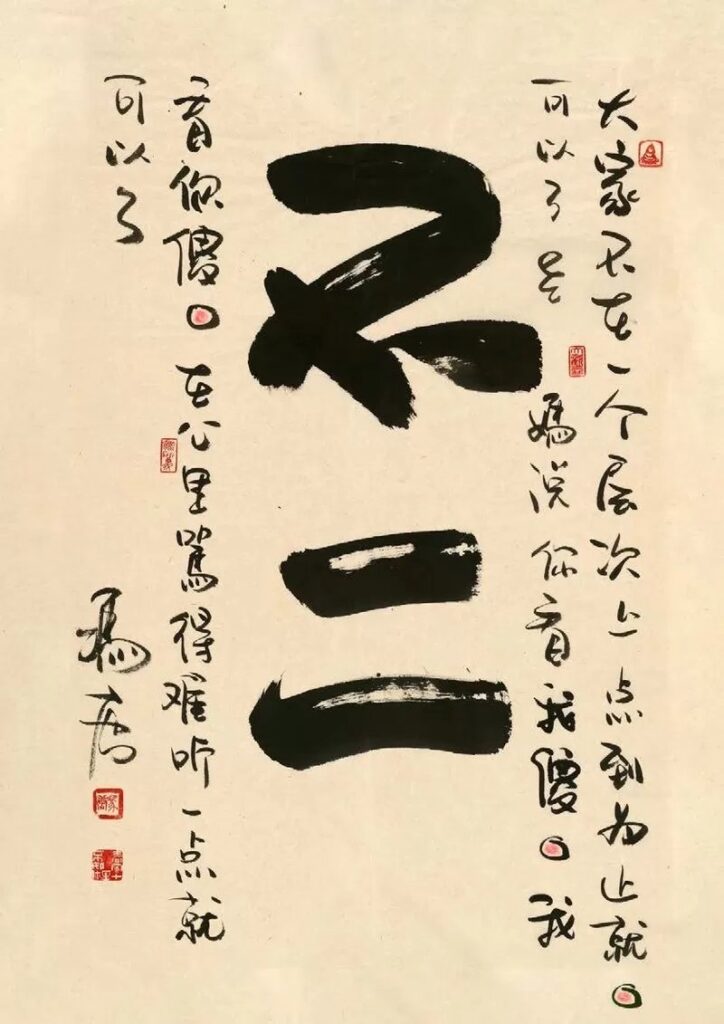 大家不在一个层次上点到为止就
可以了老妈说你看我傻我
不二
看你傻在心里骂得难听一点就
可以了
冯唐